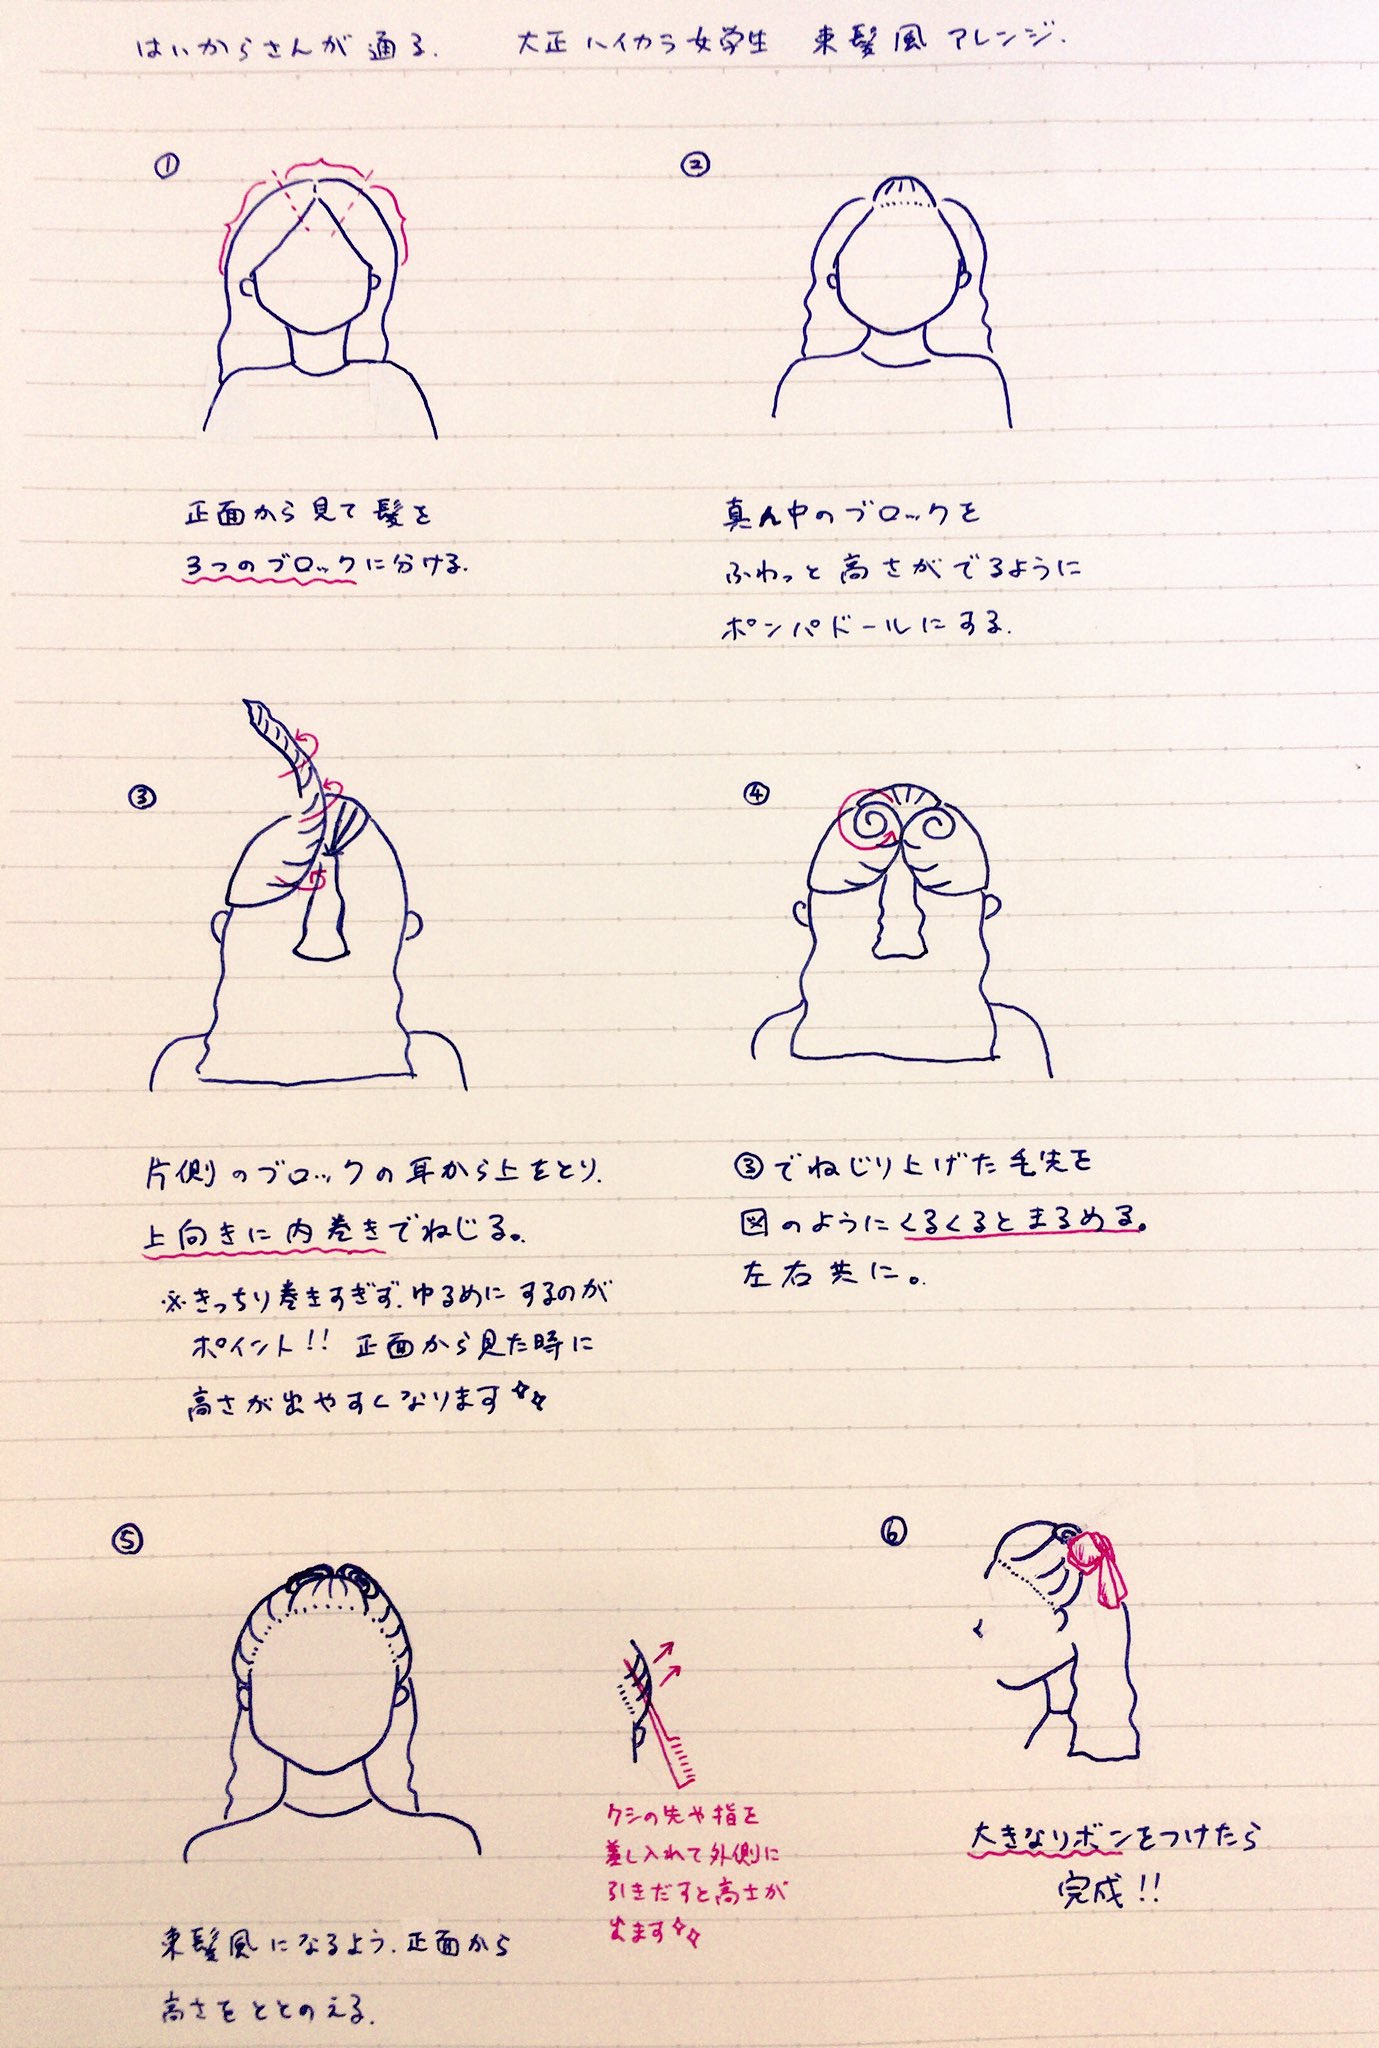 はいからさんが通る. 大正ハイカラ女学生 束髪風アレンジ.
①
②
正面から見て髪を
3つのブロックに分ける.
真ん中のブロックを
ふわっと高さがでるように
ポンパドールにする.
③
④
片側のブロックの耳から上をとり.
上向きに内巻きでねじる。
※きっちり巻きすぎず.ゆるめにするのが
ポイント!! 正面から見た時に
高さが出やすくなります☆☆
③でねじり上げた毛先を
図のようにくるくるとまるめる。
左右共に。
⑤
⑥
クシの先や指を
差し入れて外側に
引きだすと高さが
出ます☆☆
大きなリボンをつけたら
完成!!
束髪風になるよう.正面から
高さをととのえる.